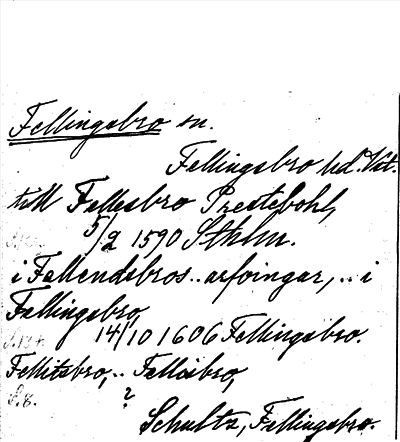 Fellingsbro sn.
Fellingsbro hd. Vst.
till Fallesbro Prestebohl,
5/2 1590 Sthlm.
i Fallendsbros .. arfoingar, .. i
Fallingsbro
14/10 1606 Fellingsbro.
Fellitzbro, .. Fellisbro,
?
Schultz, Fellingsbro.